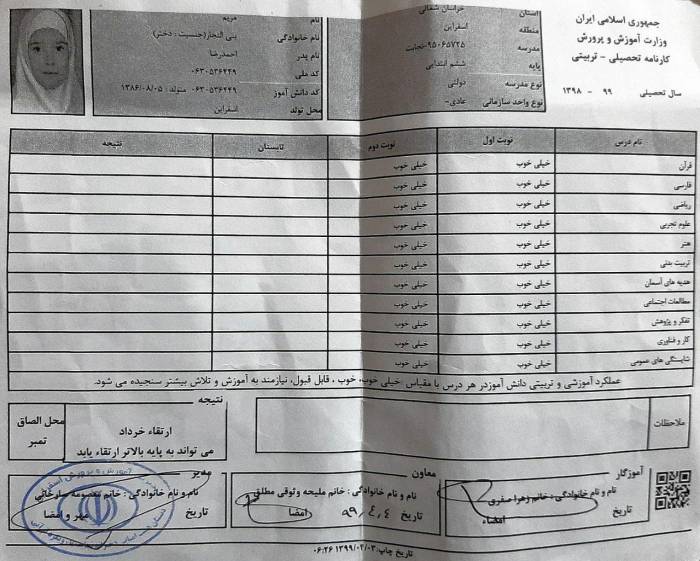 جمهوری اسلامی ایران
وزارت آموزش و پرورش
کارنامه تحصیلی - تربیتی
سال تحصیلی ۹۹ - ۱۳۹۸
استان خراسان شمالی
منطقه اسفراین
مدرسه ۹۵۰۶۵۷۲۵-نجابت
پایه ششم ابتدایی
نوع مدرسه دولتی
نوع واحد سازمانی عادی-
نام مریم
نام خانوادگی بنی النجار(جنسیت : دختر)
نام پدر احمدرضا
کد ملی ۰۶۳۰۵۳۶۲۴۹
کد دانش آموز ۰۶۳۰۵۳۶۲۴۹ متولد: ۱۳۸۶/۰۸/۰۵
محل تولد اسفراین
نام درس نوبت اول نوبت دوم تابستان نتیجه
قرآن خیلی خوب خیلی خوب
فارسی خیلی خوب خیلی خوب
ریاضی خیلی خوب خیلی خوب
علوم تجربی خیلی خوب خیلی خوب
هنر خیلی خوب خیلی خوب
تربیت بدنی خیلی خوب خیلی خوب
هدیه های آسمان خیلی خوب خیلی خوب
مطالعات اجتماعی خیلی خوب خیلی خوب
تفکر و پژوهش خیلی خوب خیلی خوب
کار و فناوری خیلی خوب خیلی خوب
شایستگی های عمومی خیلی خوب خیلی خوب
عملکرد آموزشی و تربیتی دانش آموزدر هر درس با مقیاس :خیلی خوب، خوب ، قابل قبول، نیازمند به آموزش و تلاش بیشتر سنجیده می شود.
ملاحظات
نتیجه
ارتقاء خرداد
می تواند به پایه بالاتر ارتقاء یابد
محل الصاق
تمبر
آموزگار
نام و نام خانوادگی : خانم زهرا صفری
تاریخ امضاء
معاون
نام و نام خانوادگی : خانم ملیحه وثوقی مطلق
تاریخ ۹۹/۴/۴ امضا
مدیر
نام و نام خانوادگی : خانم معصومه
تاریخ مهر و امضا
تاریخ چاپ:۱۳۹۹/۰۴/۰۳ ۰۶:۲۶